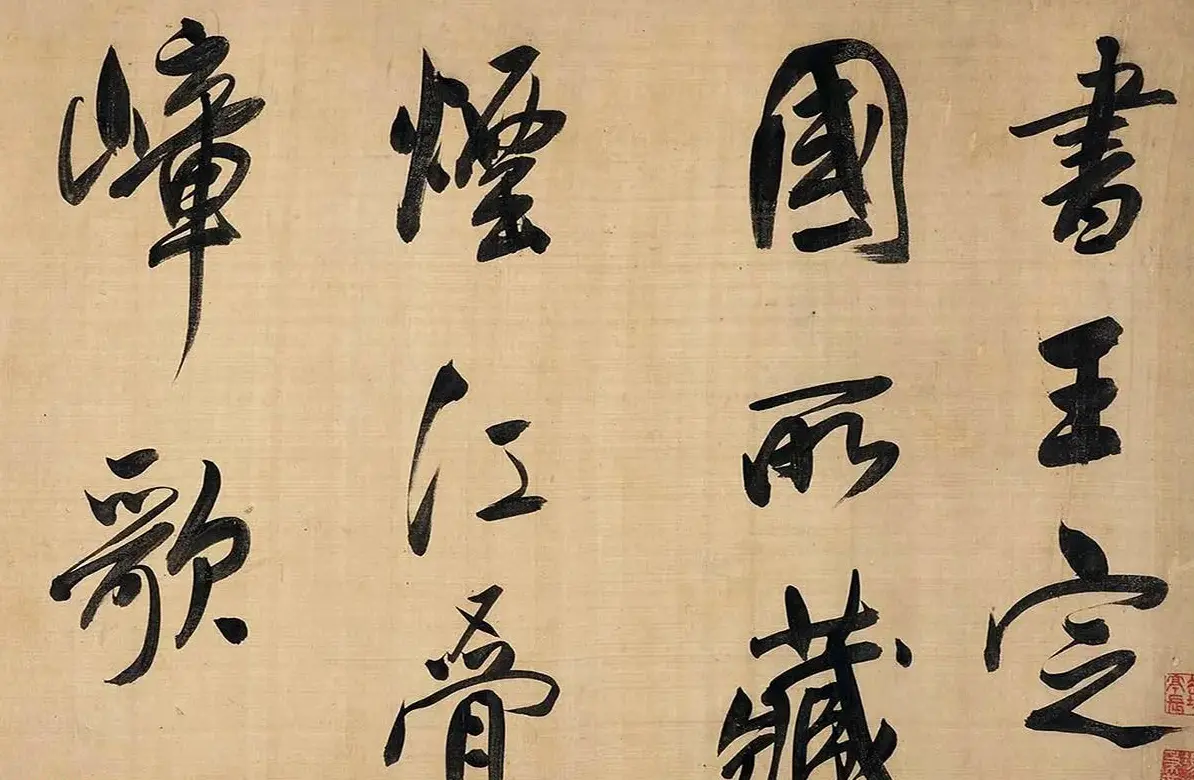 書王定
國所藏
煙江叠
嶂歌